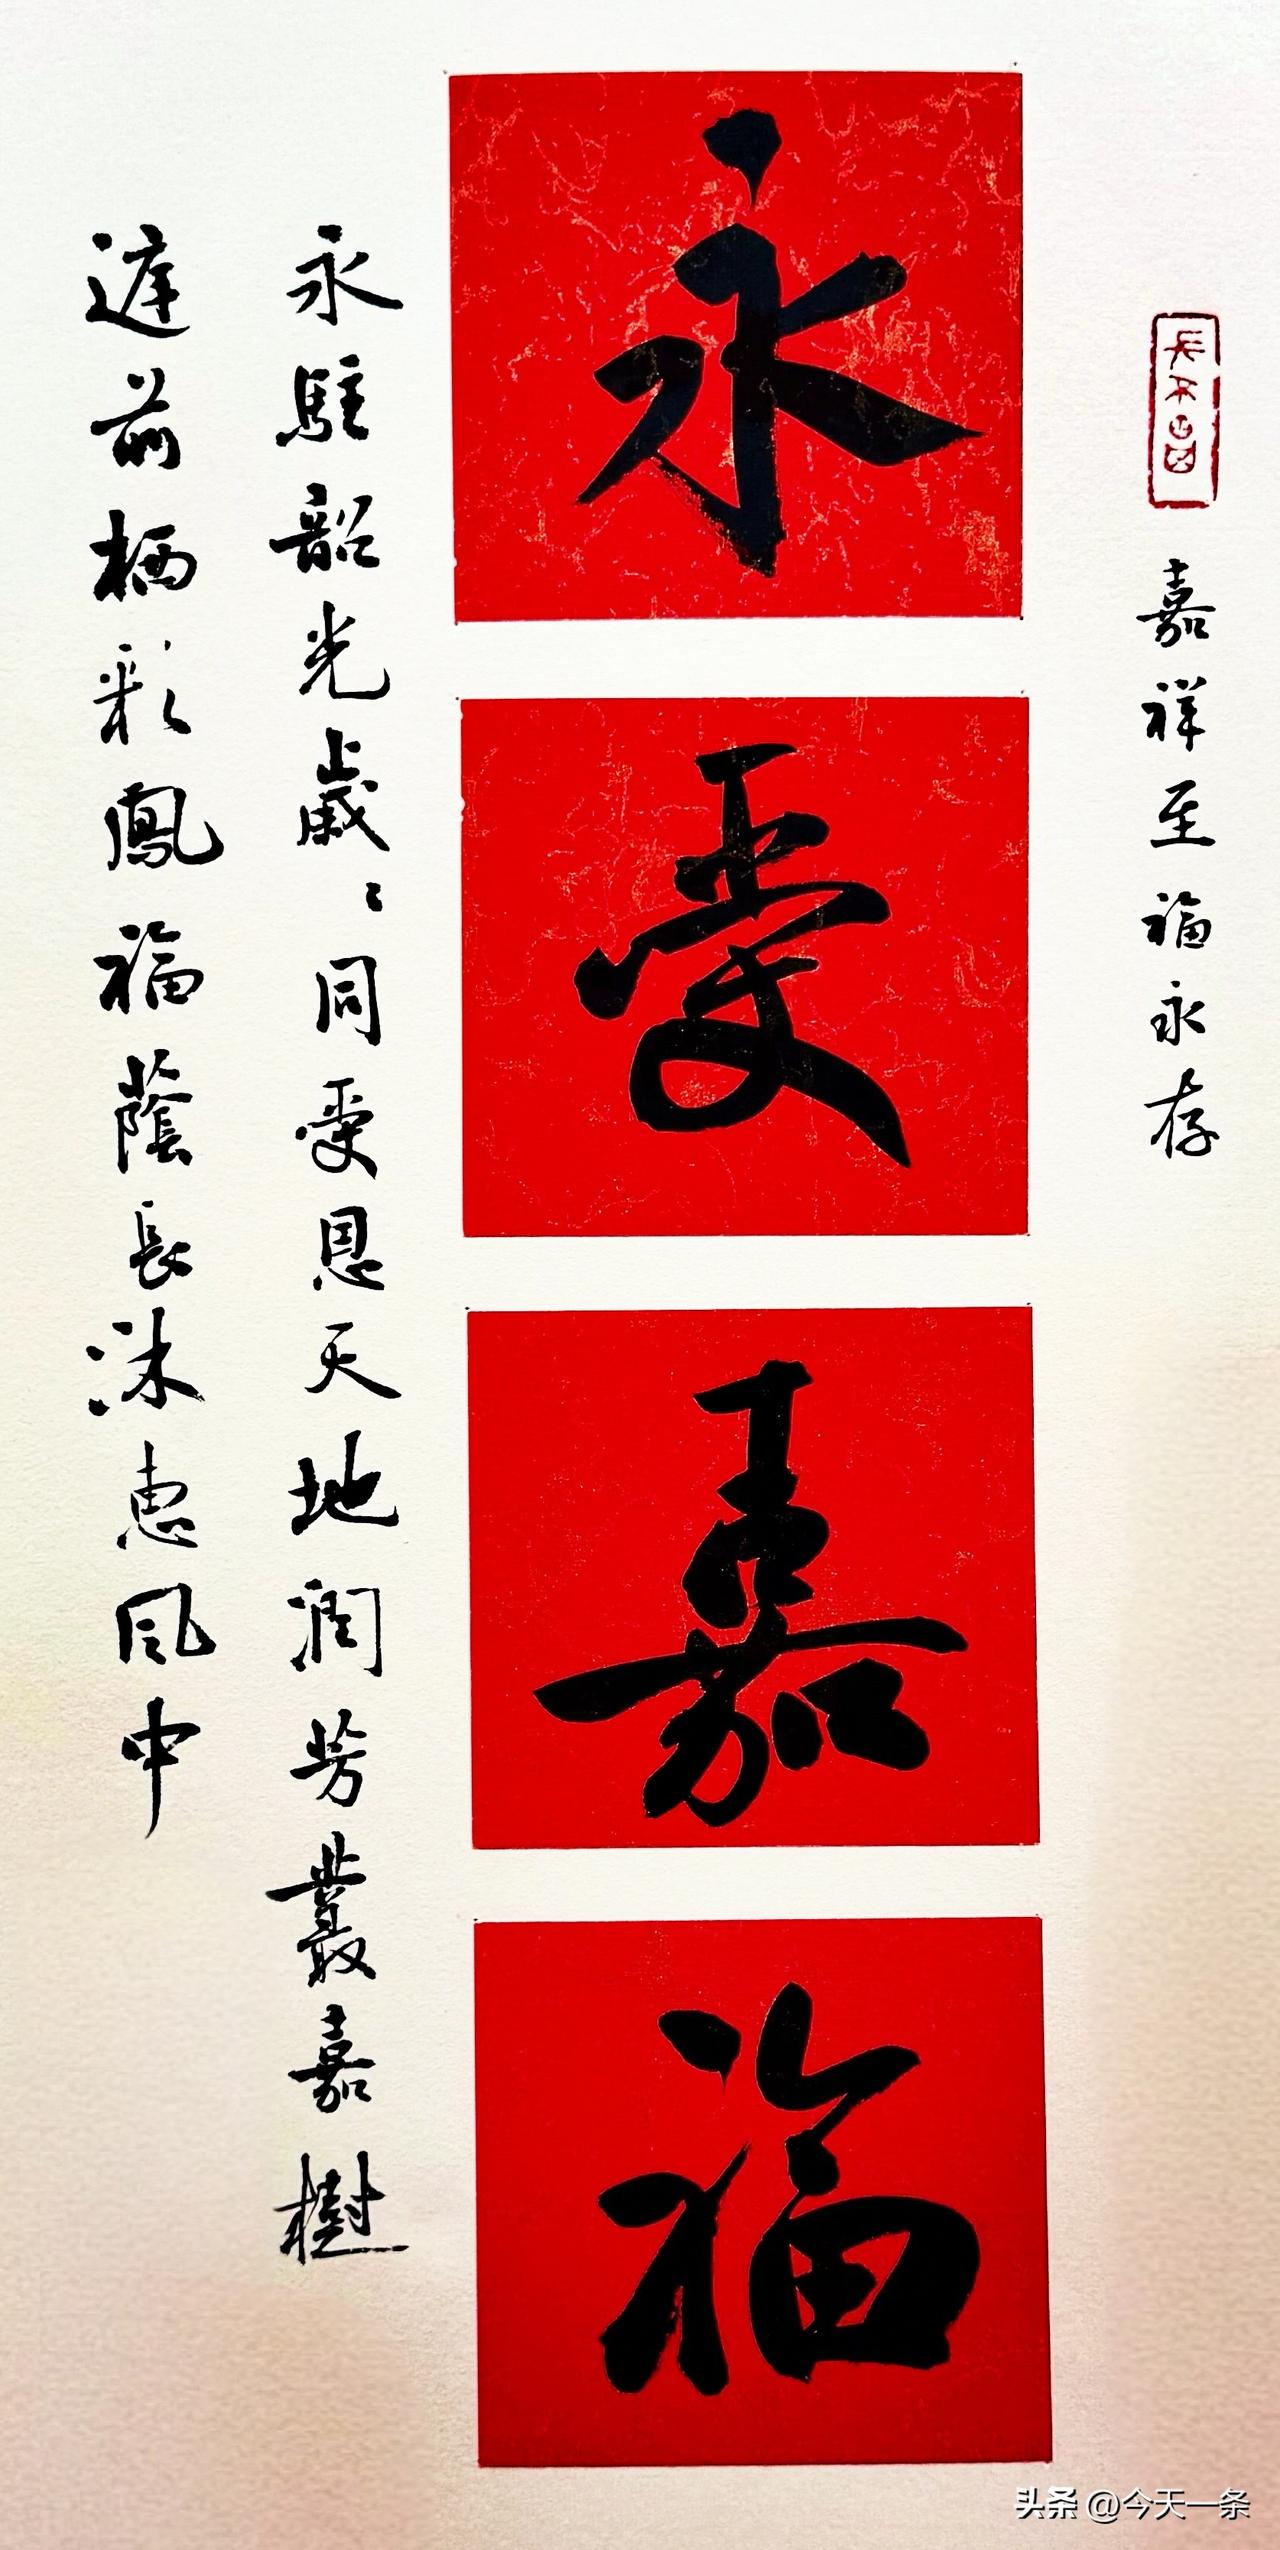 嘉祥至福永存
永受嘉福
永駐韶光歲〻同受恩天地潤芳叢嘉樹
遮前栖彩鳳福蔭長沐惠风中
头条 @今天一条